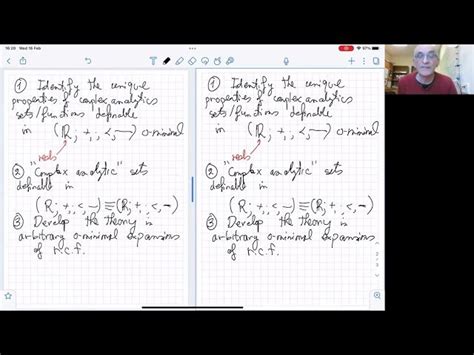 Wed 16 Feb
① Identify the unique
properties of complex analytic
sets/functions definable
in (ℝ; +, ·, <, —) o-minimal
reals
② "Complex analytic" sets
definable in
(R; +, ·, <, —) ≡ (ℝ; +, ·, <, —)
③ Develop the theory in
arbitrary o-minimal expansions
of r.c.f.
① Identify the unique
properties of complex analytic
sets/functions definable
in (ℝ; +, ·, <, —) o-minimal
reals
② "Complex analytic" sets
definable in
(R; +, ·, <, —) ≡ (ℝ; +, ·, <, —)
③ Develop the theory in
arbitrary o-minimal expansions
of r.c.f.